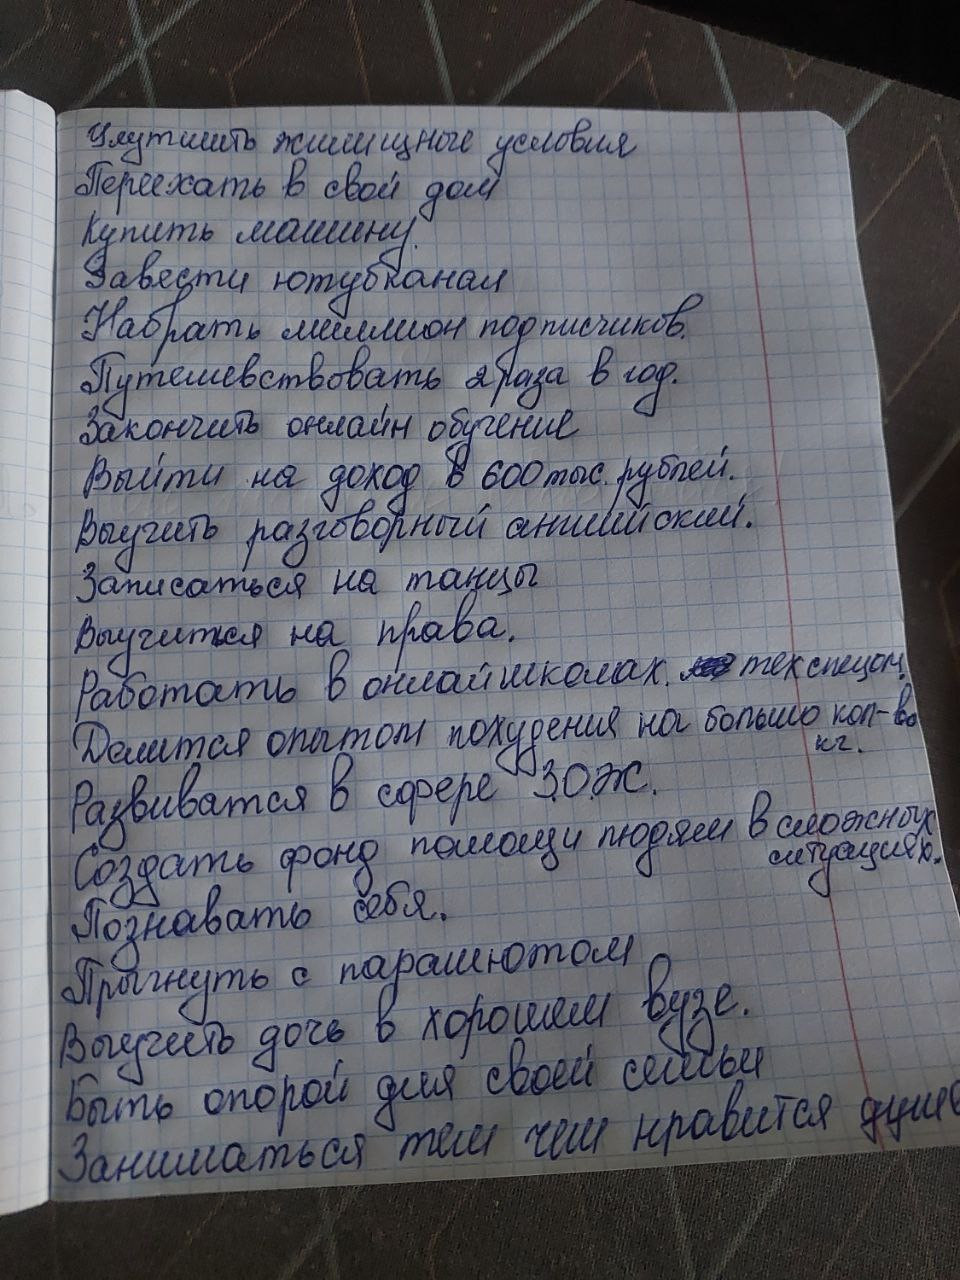 Улутшить жилищные условия
Переехать в свой дом
Купить машину.
Завести ютубканал
Набрать миллион подписчиков.
Путешевствовать 2 раза в год.
Закончить онлайн обучение
Выйти на доход в 600 тыс. рублей.
Выучить разговорный английский.
Записаться на танцы
Выучится на права.
Работать в онлайншколах. техспецом.
Делится опытом похудения на большо кол-во
кг.
Развиватся в сфере З.О.Ж.
Создать фонд помощи людям в сложных
ситуациях.
Познавать себя.
Прыгнуть с парашютом
Выучить дочь в хорошем вузе.
Быть опорой для своей семьи
Заниматься тем чем нравится душе